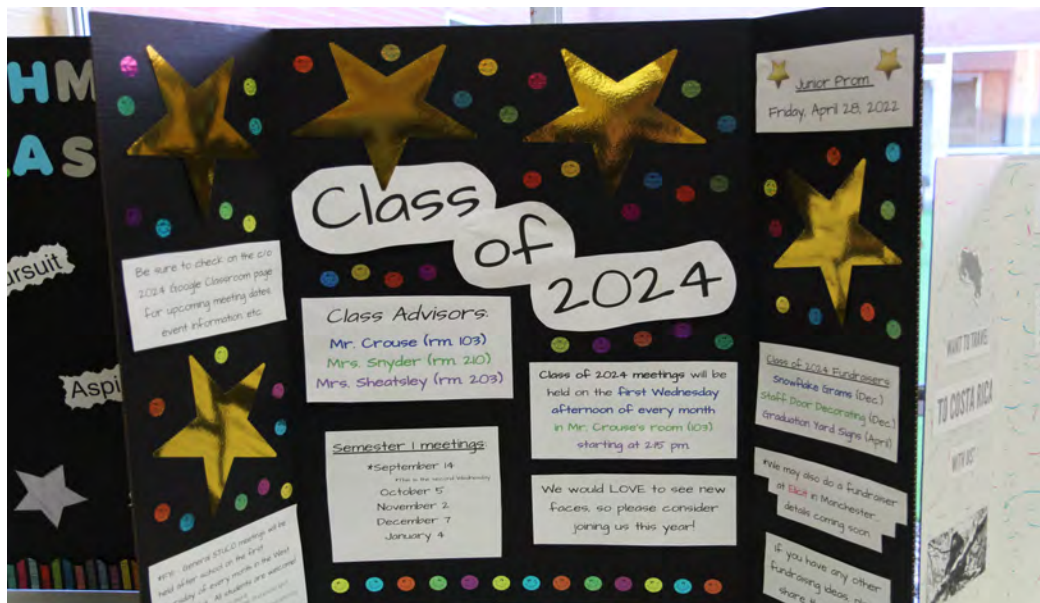 HM
AS
ursuit
Aspi
Be sure to check on the c/o
2024 Google Classroom page
for upcoming meeting dates,
event information, etc
*FYI - General STUCO meetings will be
held after school on the first
of every month in the West
All students are welcome!
Class
of
2024
Class Advisors:
Mr. Crouse (rm. 103)
Mrs. Snyder (rm. 210)
Mrs. Sheatsley (rm. 203)
Semester 1 meetings:
*September 14
*This is the second Wednesday
October 5
November 2
December 7
January 4
Class of 2024 meetings will be
held on the first Wednesday
afternoon of every month
in Mr. Crouse's room (103)
starting at 2:15 pm.
We would LOVE to see new
faces, so please consider
joining us this year!
Junior Prom
Friday, April 28, 2022
Class of 2024 Fundraisers
Snowflake Grams (Dec.)
Staff Door Decorating (Dec.)
Graduation Yard Signs (April)
*We may also do a fundraiser
at Elicit in Manchester...
details coming soon
If you have any other
fundraising ideas,
share
WANT TO TRAVEL
TO COSTA RICA
WITH US?